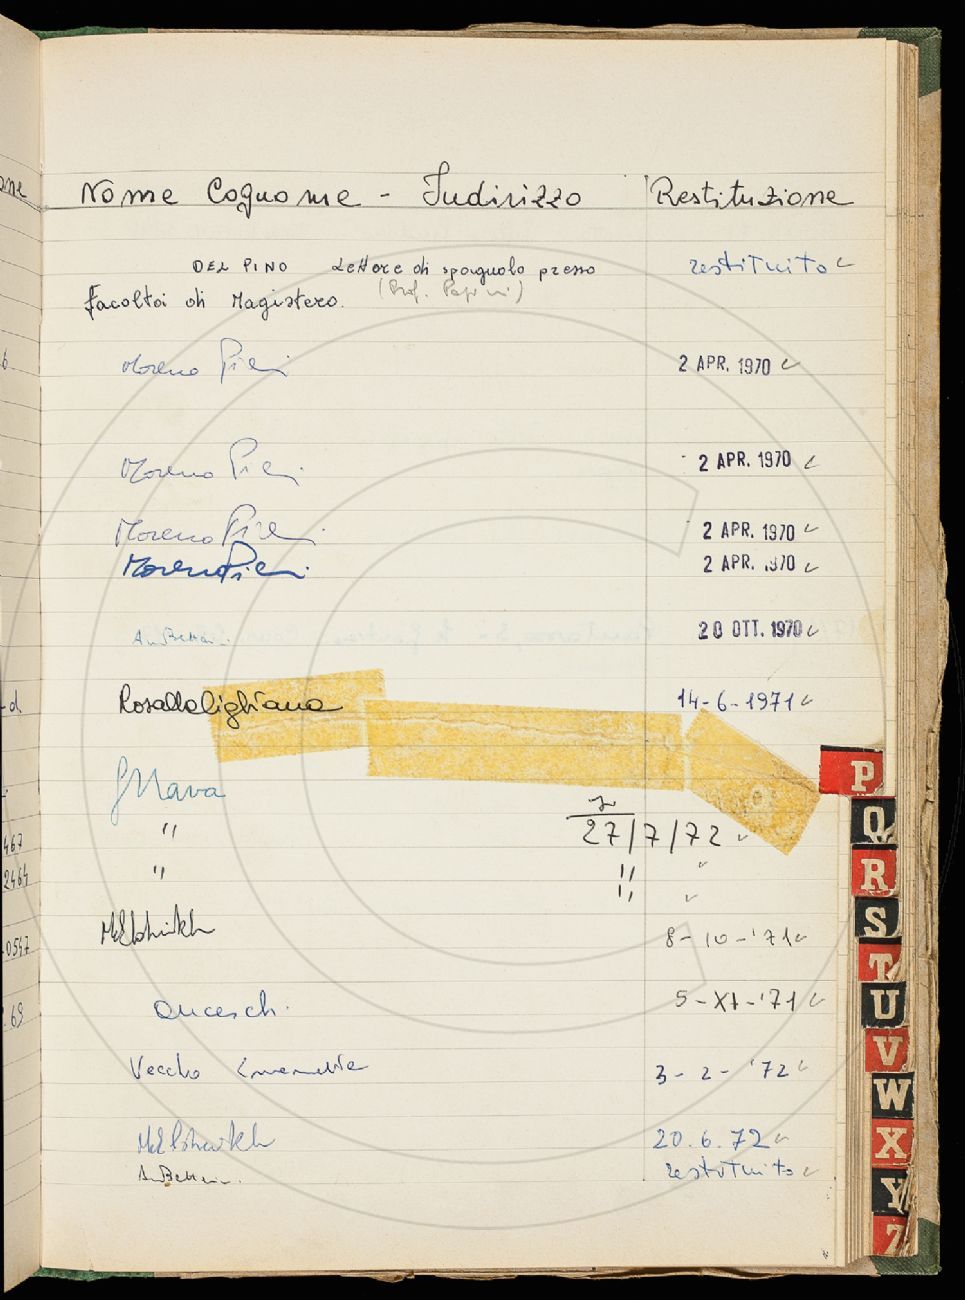 Nome Cognome - Indirizzo Restituzione
DEL PINO Lettore di spagnolo presso restituito
(Prof. Papini)
facoltà di Magistero.
Moreno Pieri 2 APR. 1970
Moreno Pieri 2 APR. 1970
Moreno Pieri 2 APR. 1970
Moreno Pieri 2 APR. 1970
A. Bettini. 20 OTT. 1970
Rosalba 14-6-1971
Nava
" 27/7/72
" "
"
8-10-'71
5-XI-'71
Vecchio 3-2-'72
20.6.72
A. Bettini. restituito
one
6
-d.
467
2464
0547
69
P
Q
R
S
T
U
V
W
X
Y
Z